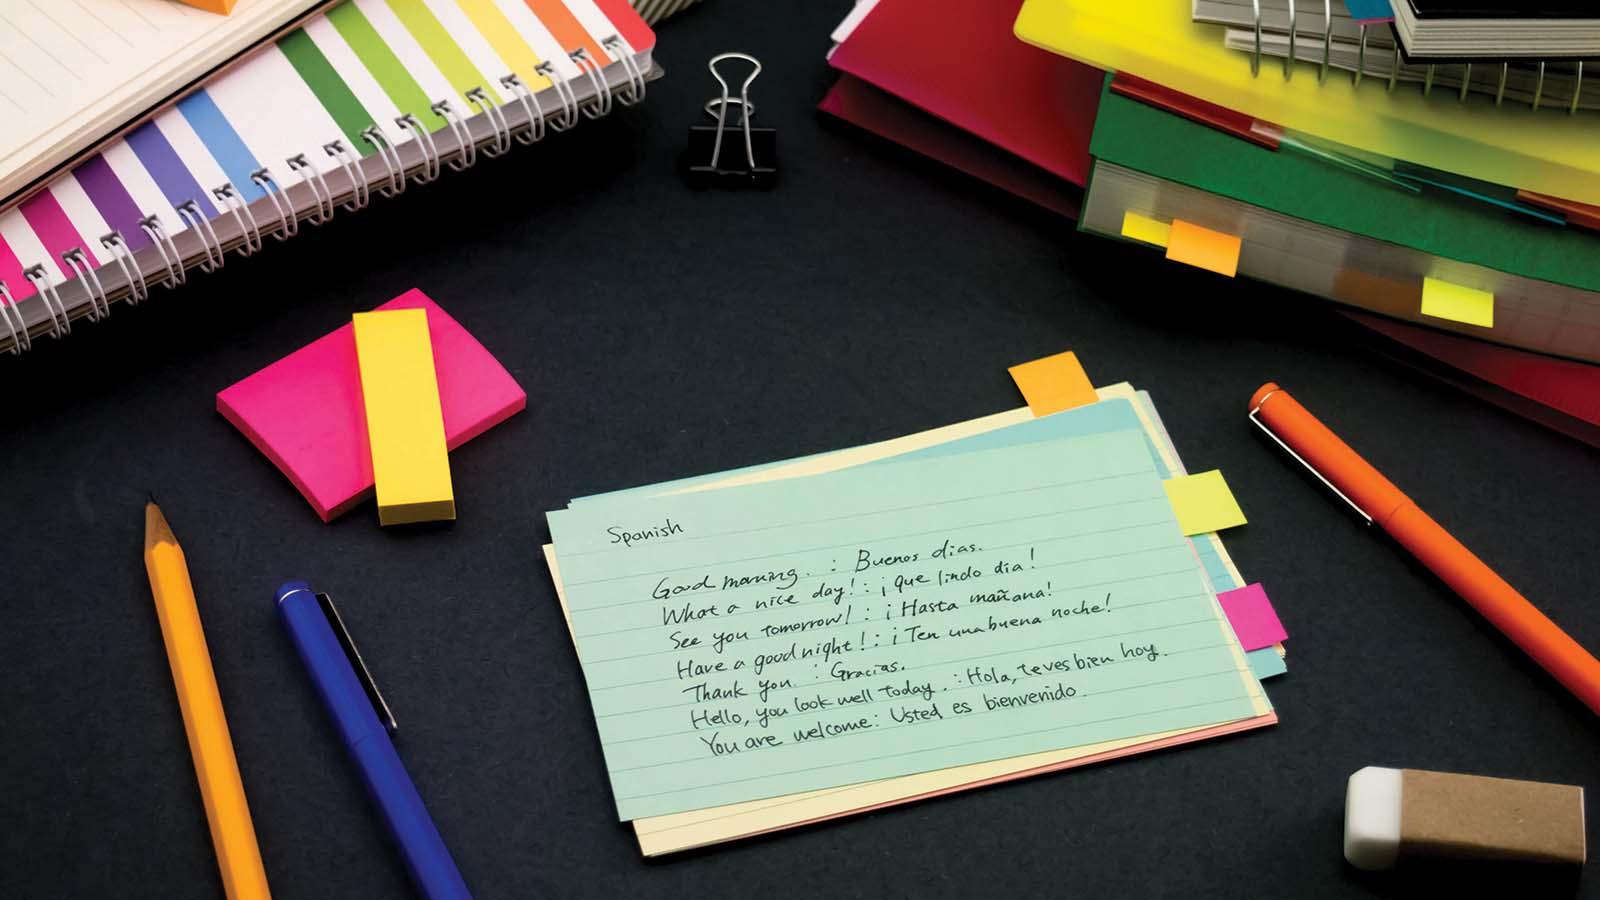 Spanish
Good morning. : Buenos dias.
What a nice day! : ¡que lindo dia!
See you tomorrow! : ¡Hasta mañana!
Have a good night! : ¡Ten una buena noche!
Thank you. : Gracias.
Hello, you look well today. : Hola, te ves bien hoy.
You are welcome: Usted es bienvenido.